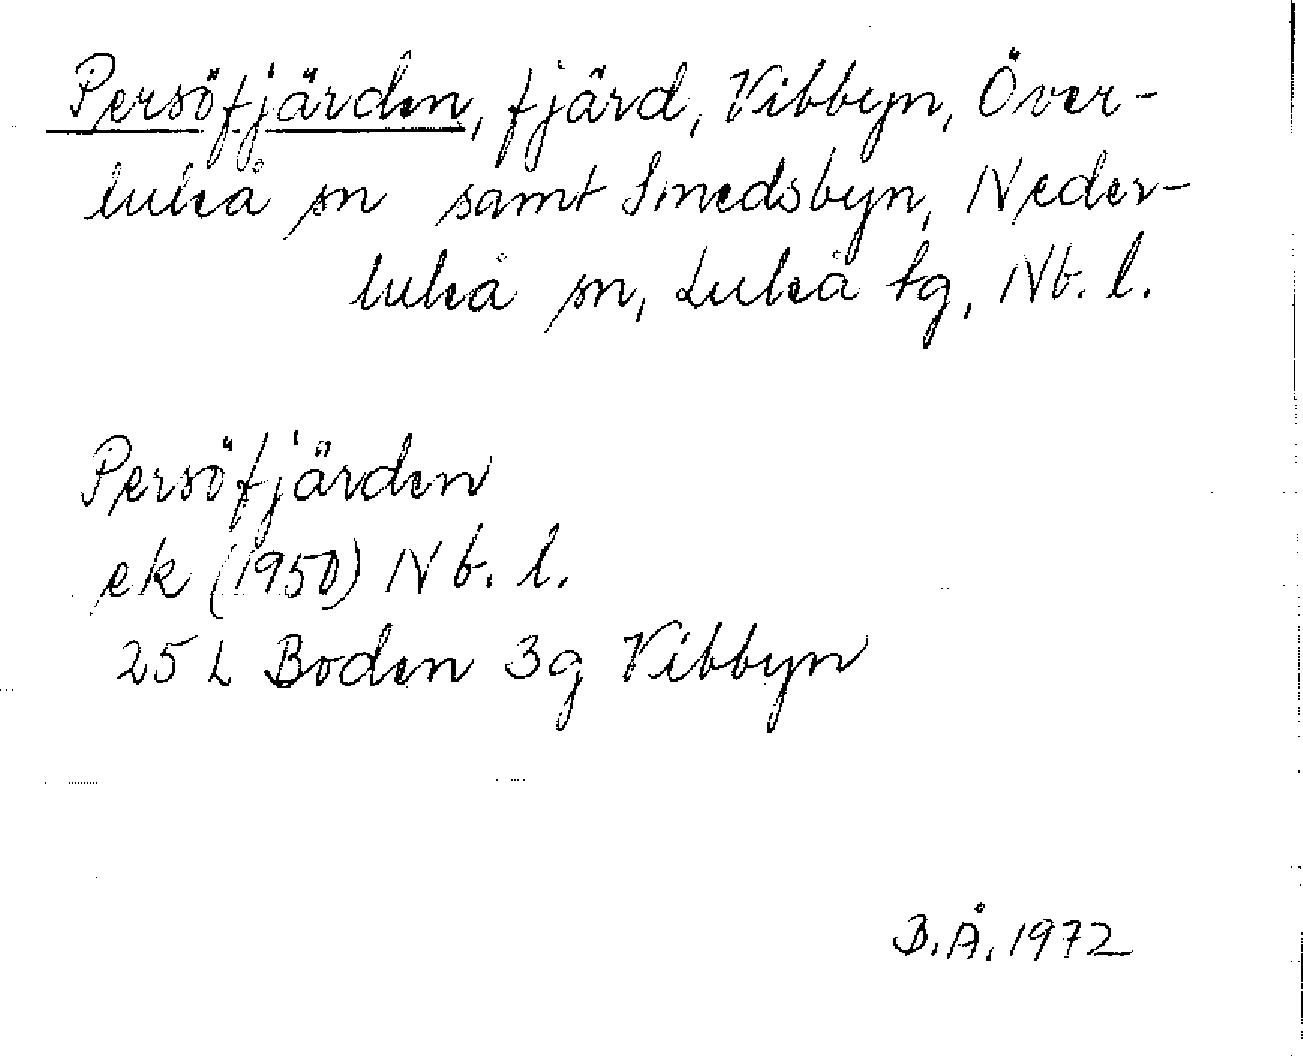 Persöfjärden, fjärd, Vibbyn, Över-
luleå sn samt Smedsbyn, Neder-
luleå sn, Luleå tg, Nb. l.
Persöfjärden
ek (1950) Nb. l.
25 L Boden 3g Vibbyn
B.Å. 1972